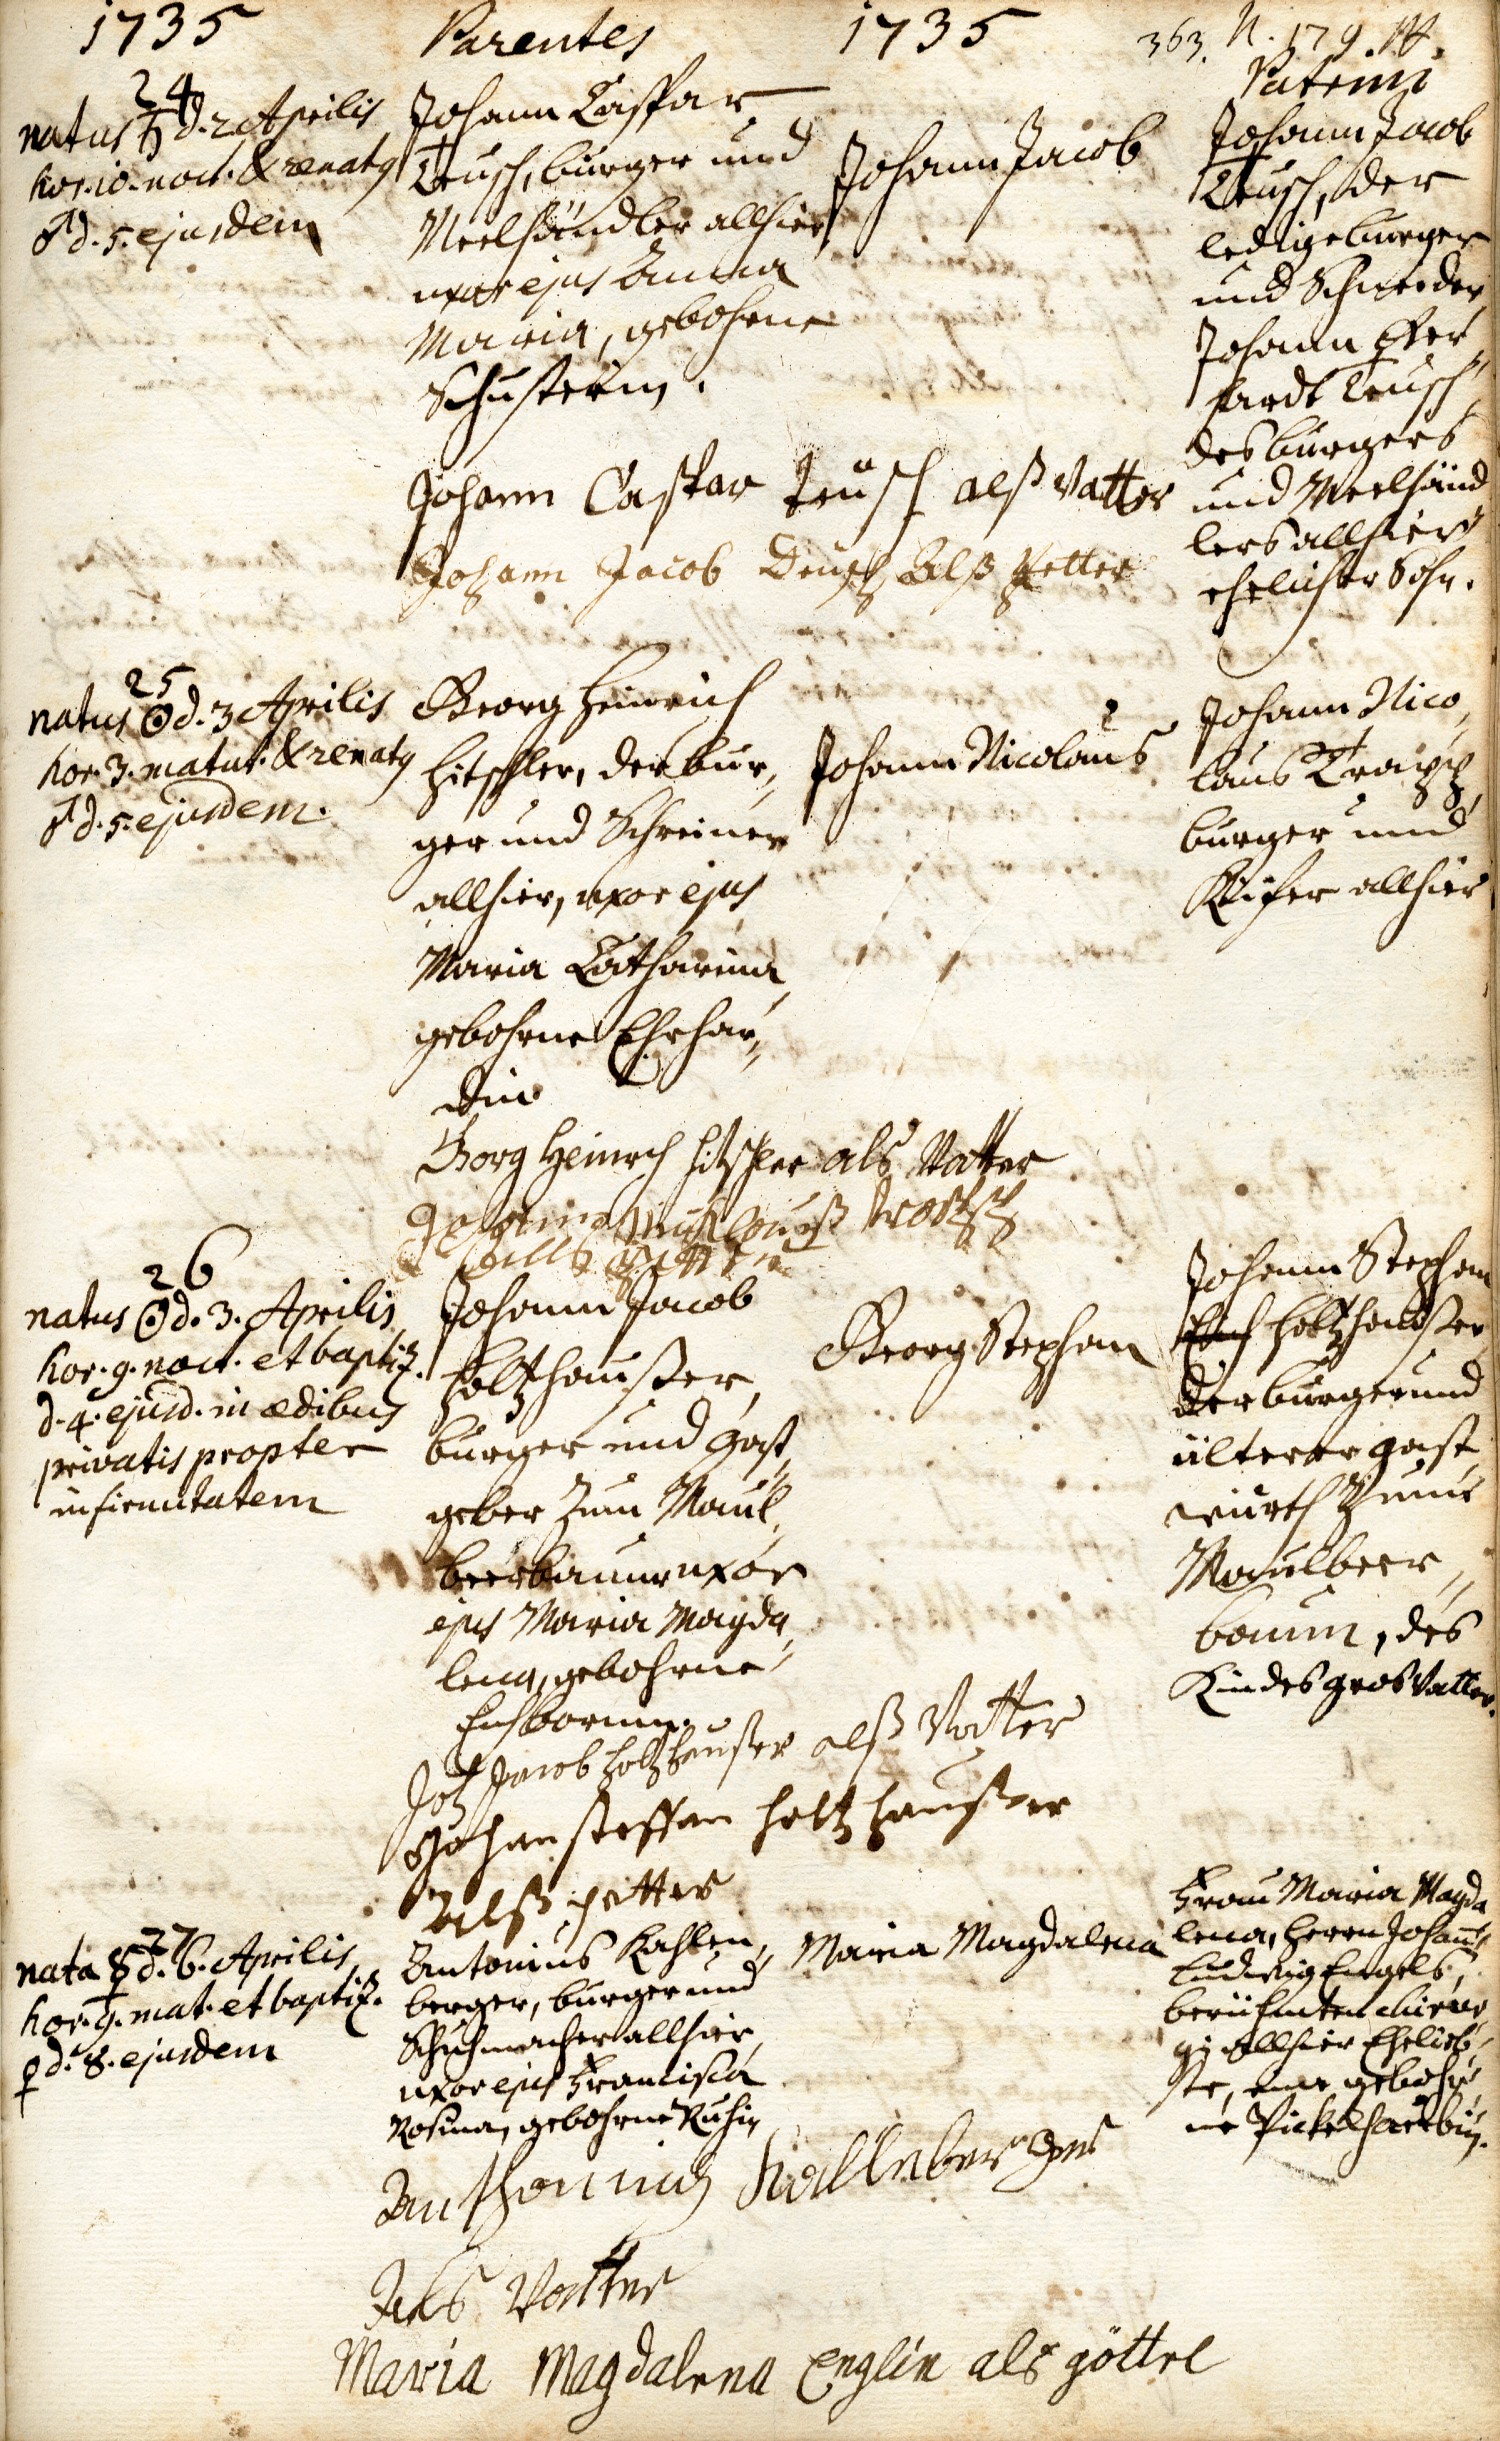 1735 Parentes 1735 363. N. 179.
Patrini
24
natus ♄ d. 2 Aprilis
hor. 10. noct. & renatq
♂ d. 5. ejusdem
Johann Caspar
Teusch, burger und
Meelhändler allhier
uxor ejus Anna
Maria, gebohrne
Schusterin.
Johann Jacob
Johann Jacob
Teusch, der
ledige burger
und Schneider
Johann Eber,,
hardt Teusch
des burgers
und Meelhänd
lers allhier
ehelicher Sohn.
Johann Caspar Teüsch alß Vatter
Johann Jacob Deusch Alß Petter
25
natus ☉ d. 3 Aprilis
hor. 3. matut. & renatq
♂ d. 5. ejusdem.
Georg Heinrich
Hitschler, der bur,,
ger und Schreiner
allhier, uxor ejus
Maria Catharina
gebohrne Ehrhar,,
din
Johann Nicolaus
Johann Nico,,
laus
burger und
Kiefer allhier
Georg Heinrch Hitschler als Vatter
Johannes
alls Petter
26
natus ☉ d. 3. Aprilis
hor. 9. noct. et baptiz.
d. 4. ejusd. in ædibus
privatis propter
infirmitatem
Johann Jacob
Holtzhaußer,
burger und Gast,,
geber zum Maul,,
beerbaum uxor
ejus Maria Magda,,
lena, gebohrne
Georg Stephan
Johann Stephan
Holtzhaußer
der burger und
älterer gast,,
würth zum
Maulbeer,,
baum, des
Kindes grosvatter.
Joh Jacob Holtzhaußer alß Vatter
Johan steffan holtzhaußer
Alß petter
27
nata ☿ d. 6. Aprilis
hor. 9. mat. et baptiz.
♀ d. 8. ejusdem
Antonius Kahlen,,
berger, burger und
Schuhmacher allhier
uxor ejus Francisca
Rosina, gebohrne Ruhin
Maria Magdalena
Frau Maria Magda
lena, Herrn Johann
Ludwig Engels,
berühmten chirur,,
gi allhier Ehelieb,,
ste, eine gebohr,,
ne Pickelhaerbin.
Anthonius Kalleberger
Als Vatter
Maria Magdalena Englin als göttel